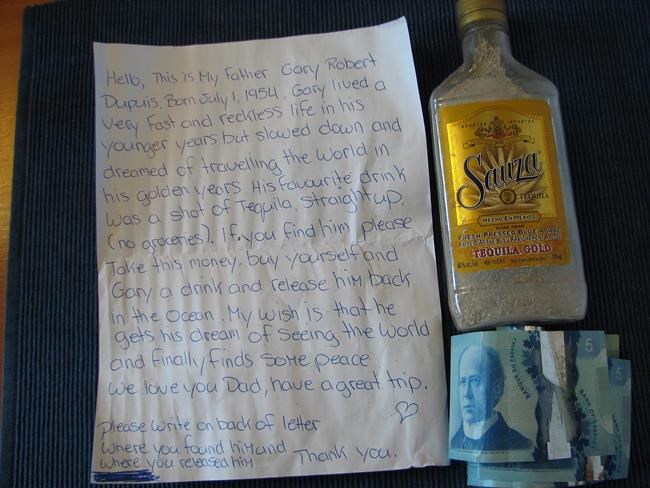 Hello, This is My Father Gary Robert
Dupuis. Born July 1, 1954. Gary lived a
very fast and reckless life in his
younger years but slowed down and
dreamed of travelling the world in
his golden years. His favourite drink
was a shot of Tequila, straight up,
(no groceries). If you find him please
Take this money, buy yourself and
Gary a drink and release him back
in the ocean. My wish is that he
gets his dream of seeing the world
and finally finds some peace
We love you Dad, have a great trip.
please write on back of letter
where you found him and
where you released him
Thank you.
IMPORTED
IMPORTED
Sauza
TEQUILA
HECHO EN MEXICO
MADE FROM
FRESH PRESSED BLUE AGAVE
TEQUILA GOLD
BANQUE DU CANADA
BANK OF
5
5